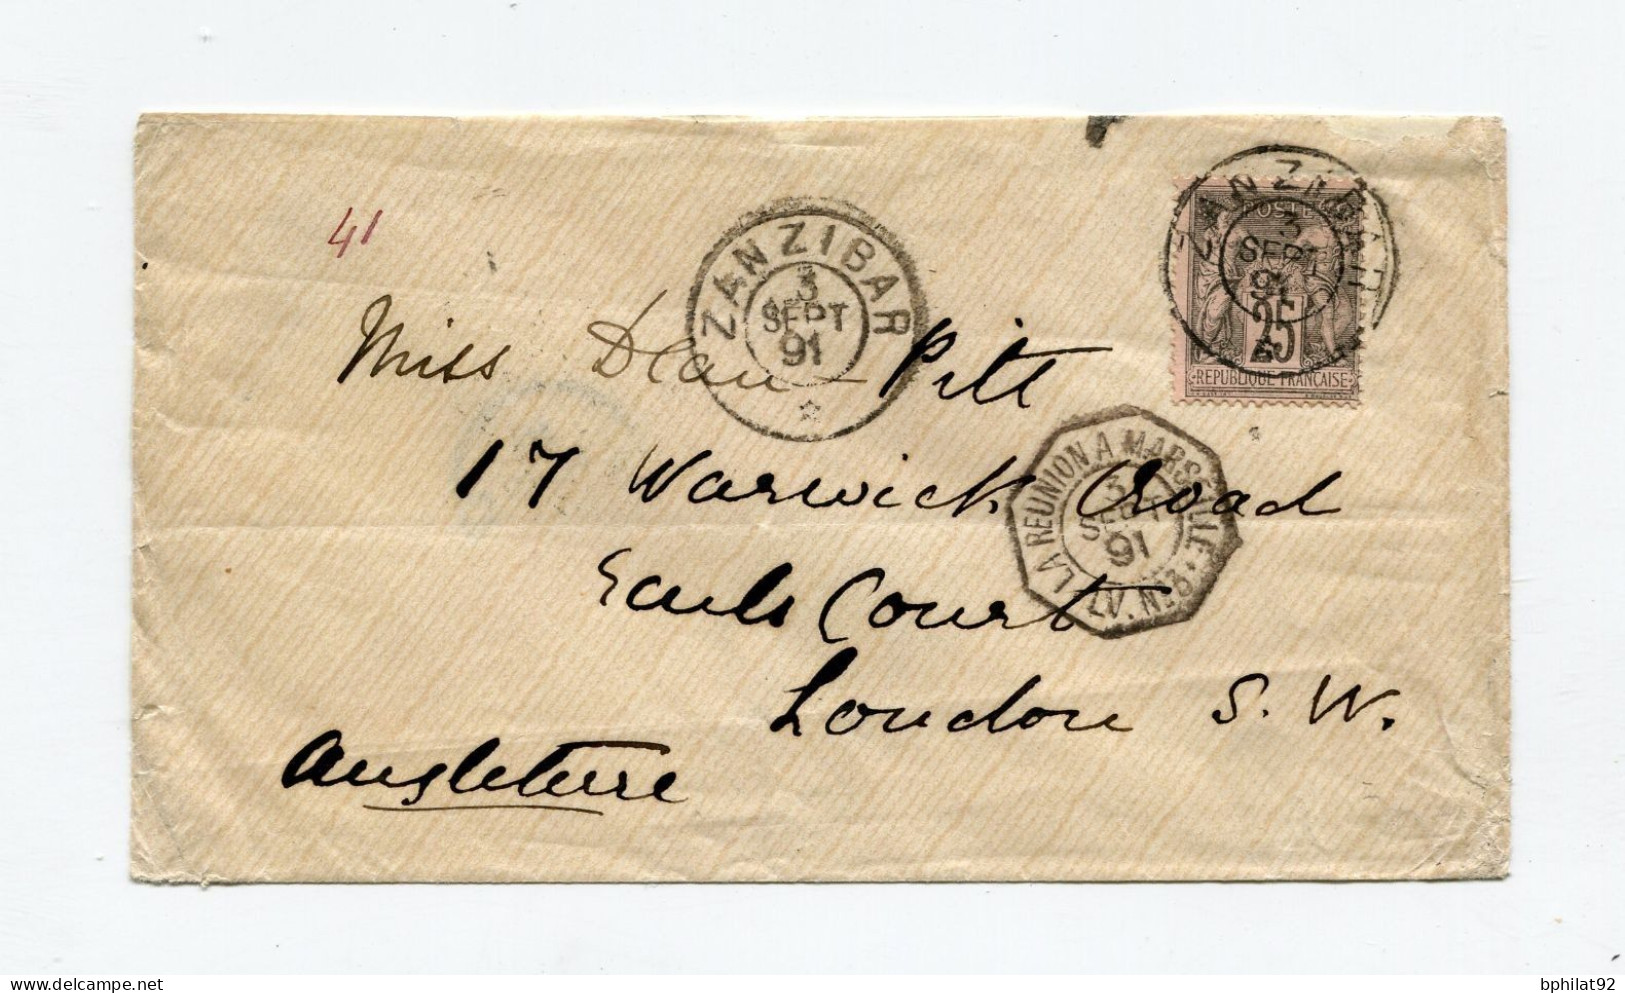 41
ZANZIBAR
3
SEPT
91
ZANZIBAR
3
SEPT
91
POSTE
25
REPUBLIQUE FRANCAISE
Miss Dean-Pitt
17 Warwick Road
Earls Court
London S. W.
Angleterre
LA REUNION A MARSEILLE
3
SEPT
91
LV. No3
delcampe.net
bphilat92